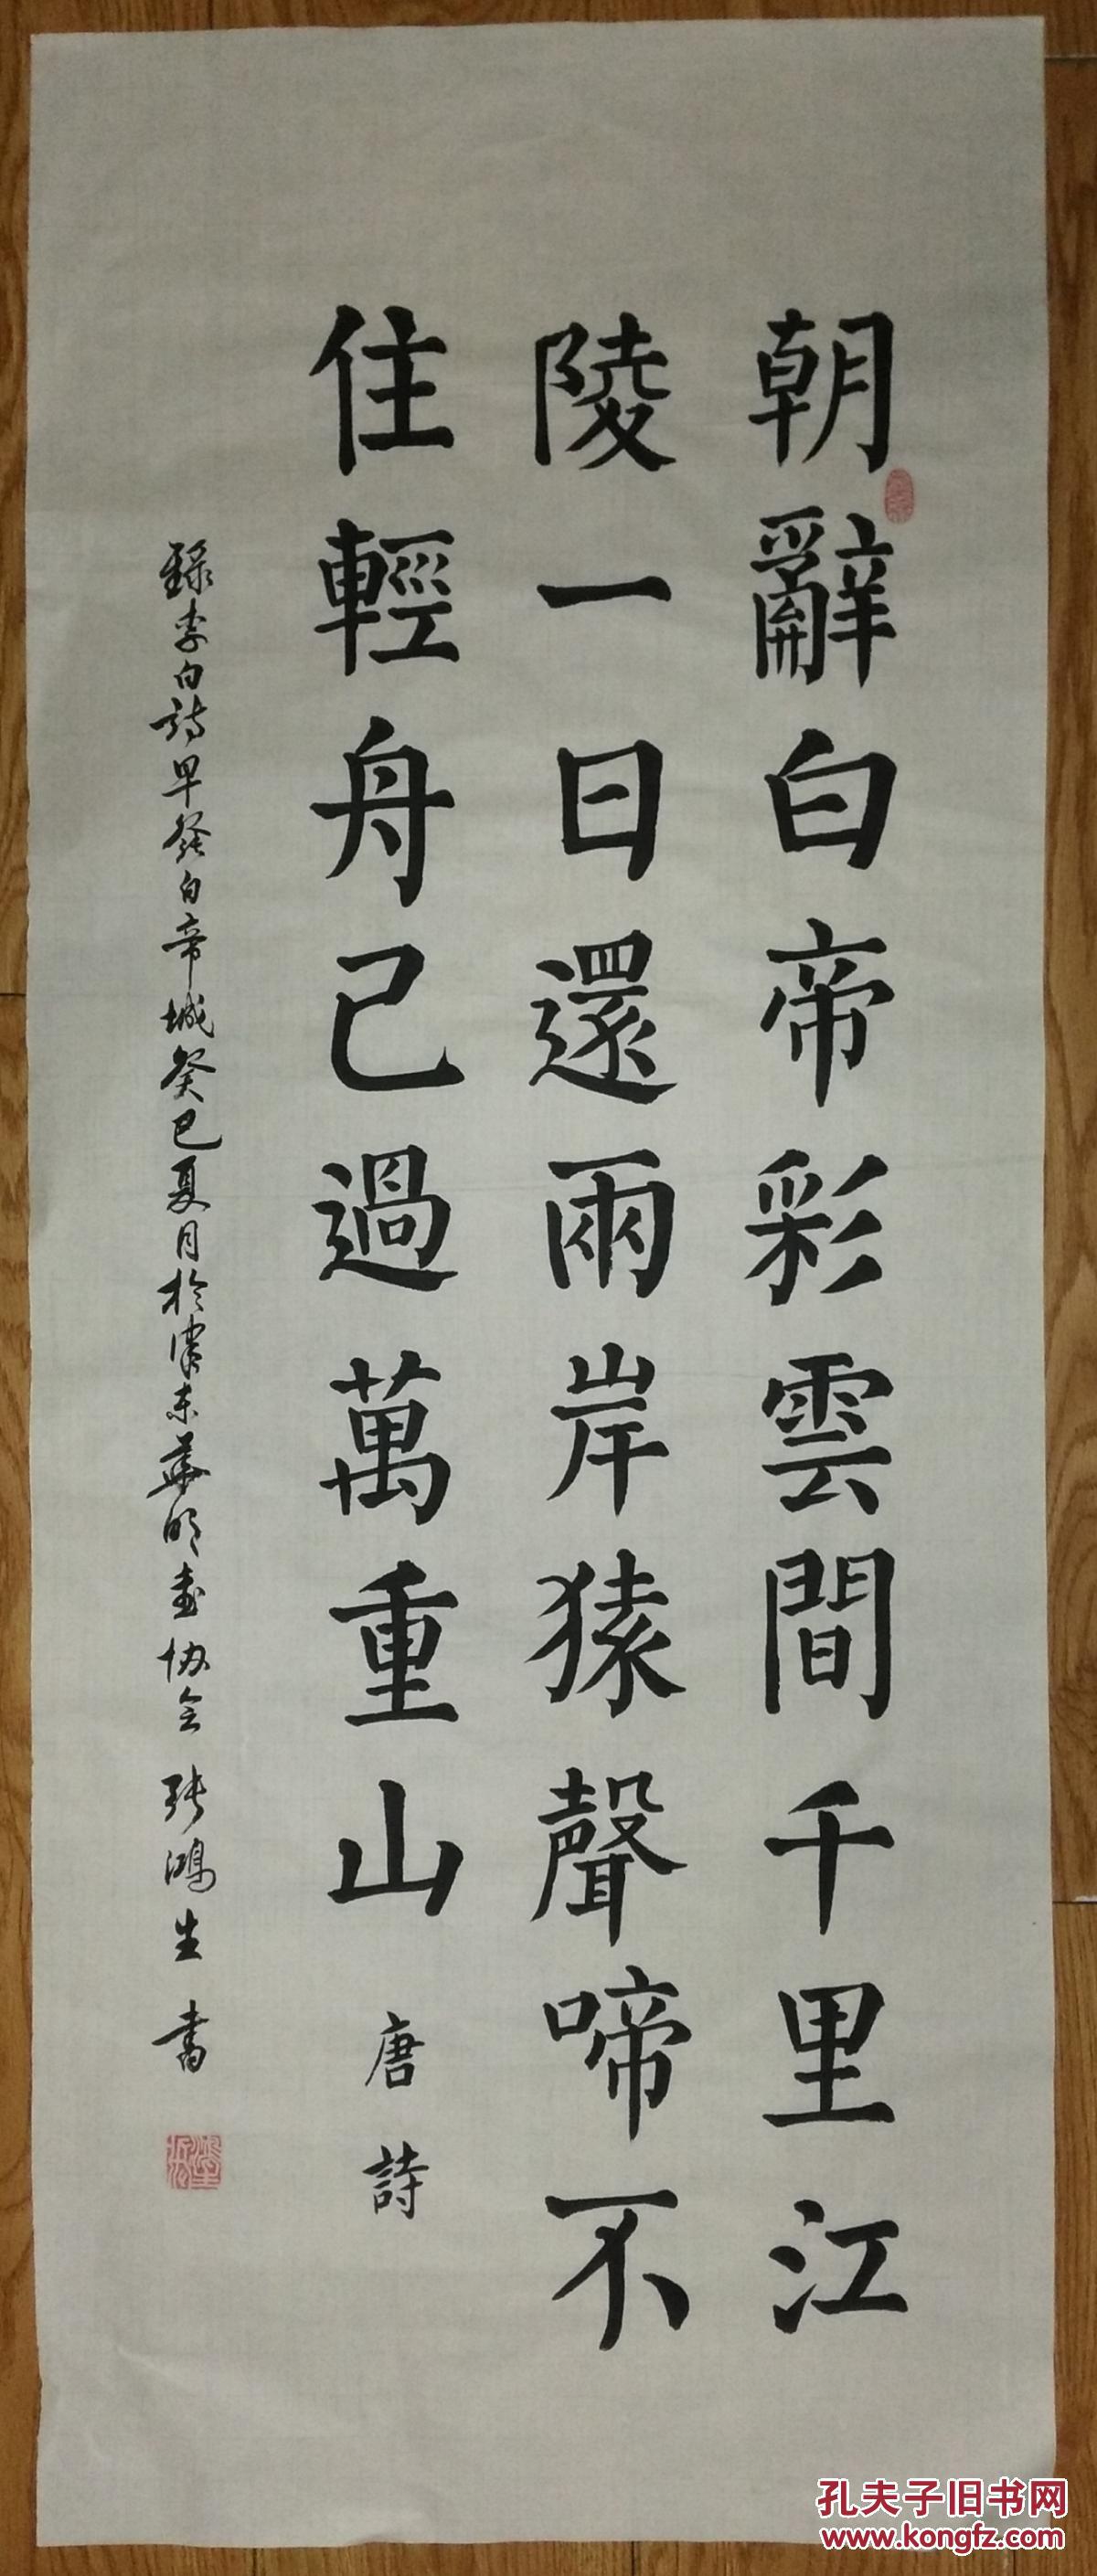 朝辭白帝彩雲間千里江
陵一日還兩岸猿聲啼不
住輕舟已過萬重山
唐詩
錄李白詩早發白帝城癸巳夏月於津東華明書协会 張鴻生書
孔夫子旧书网
www.kongfz.com